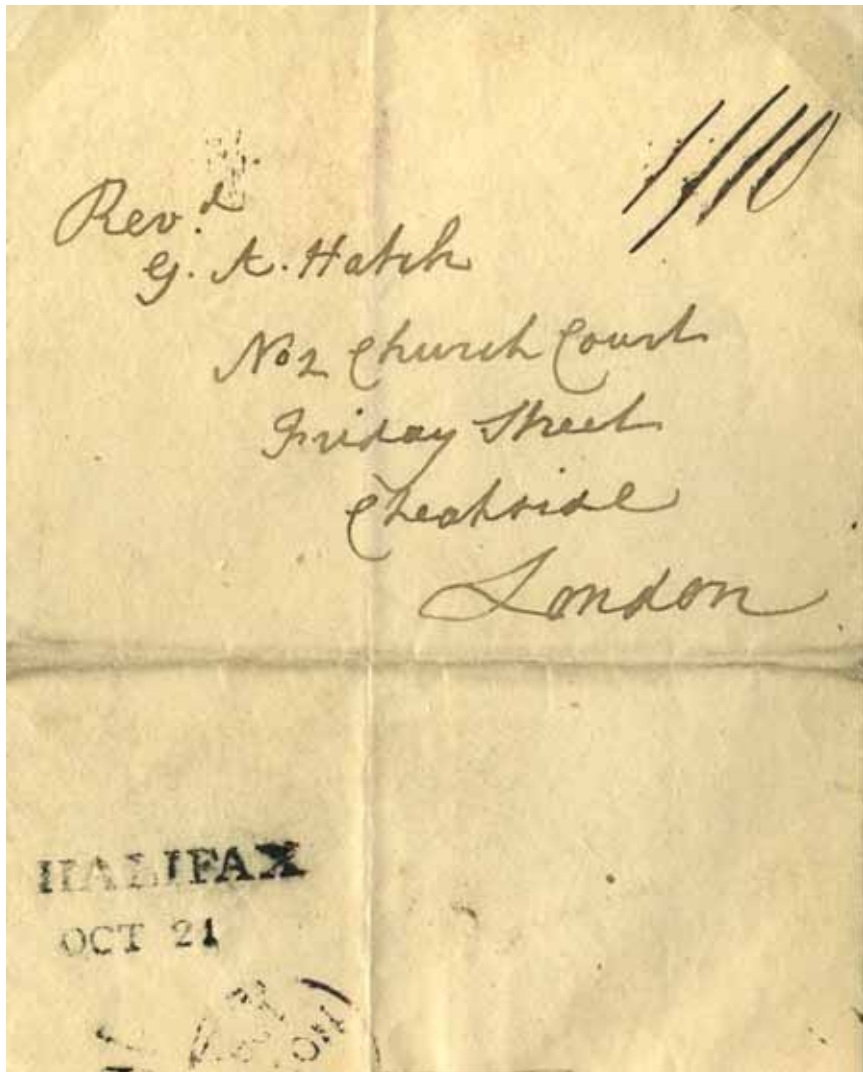 1/10
Rev.d
G. A. Hatch
No 2 Church Court
Friday Street
Cheapside
London
HALIFAX
OCT 21